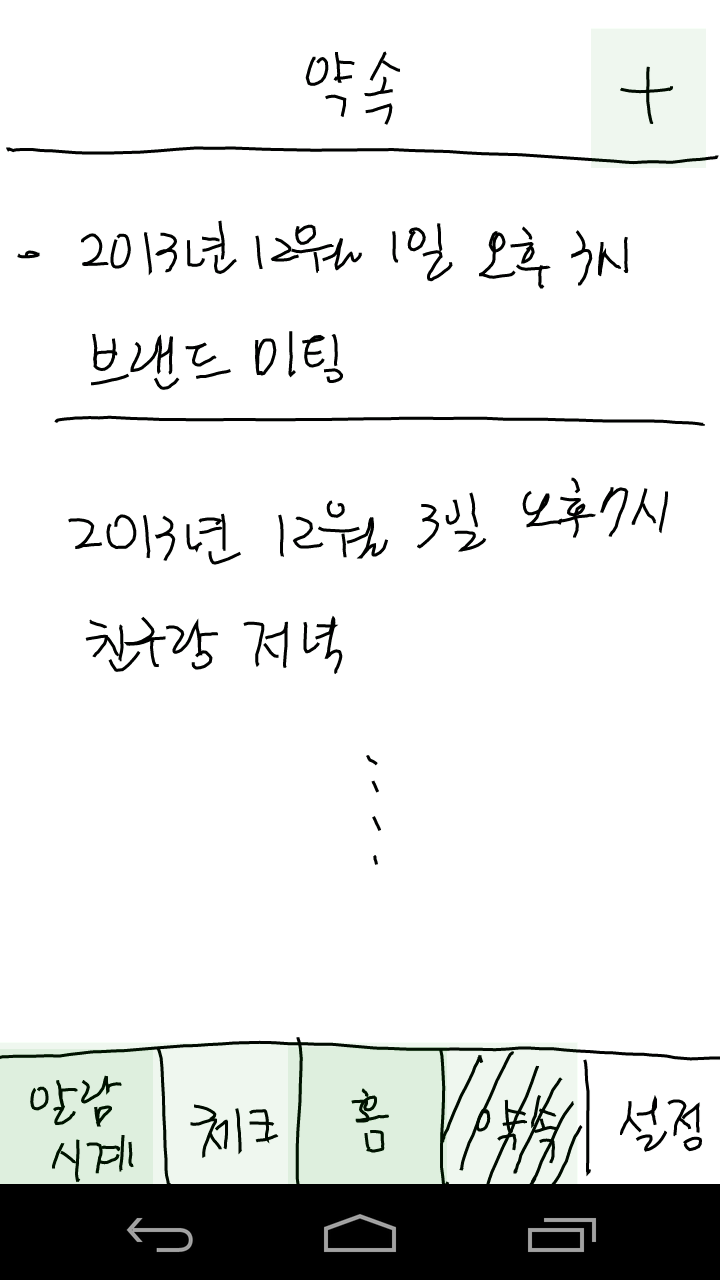 약속 +
- 2013년 12월 1일 오후 3시
브랜드 미팅
2013년 12월 3일 오후 7시
친구랑 저녁
알람
시계
체크
홈
약속
설정